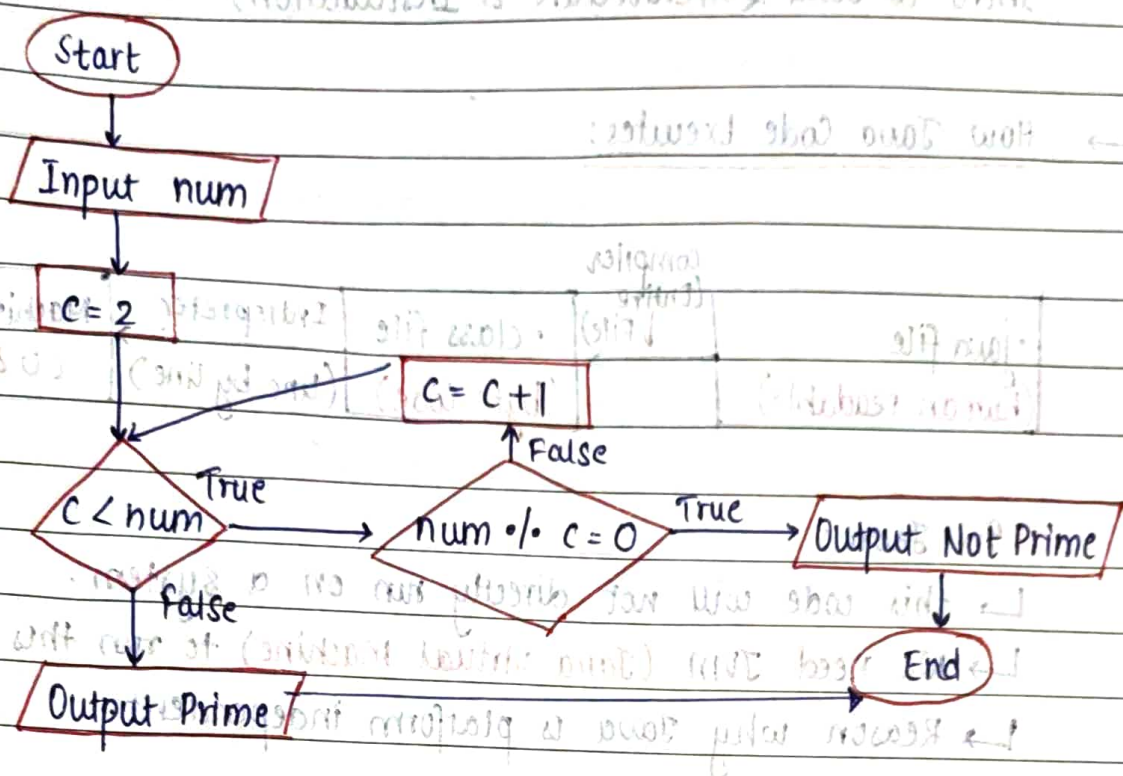 Start
Input num
C = 2
C = C + 1
False
C < num
True
num % c = 0
True
Output Not Prime
False
End
Output Prime